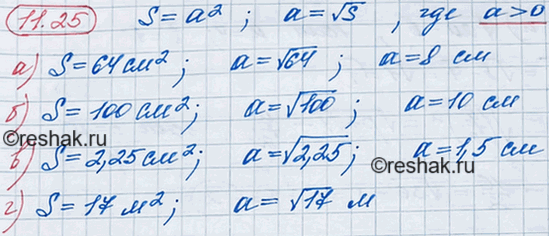 11.25 S = a² ; a = √S , где a > 0
а) S = 64 см² ; a = √64 ; a = 8 см
б) S = 100 см² ; a = √100 a = 10 см
©reshak.ru
в) S = 2,25 см² ; a = √2,25 ; a = 1,5 см
©reshak.ru
г) S = 17 м² ; a = √17 м